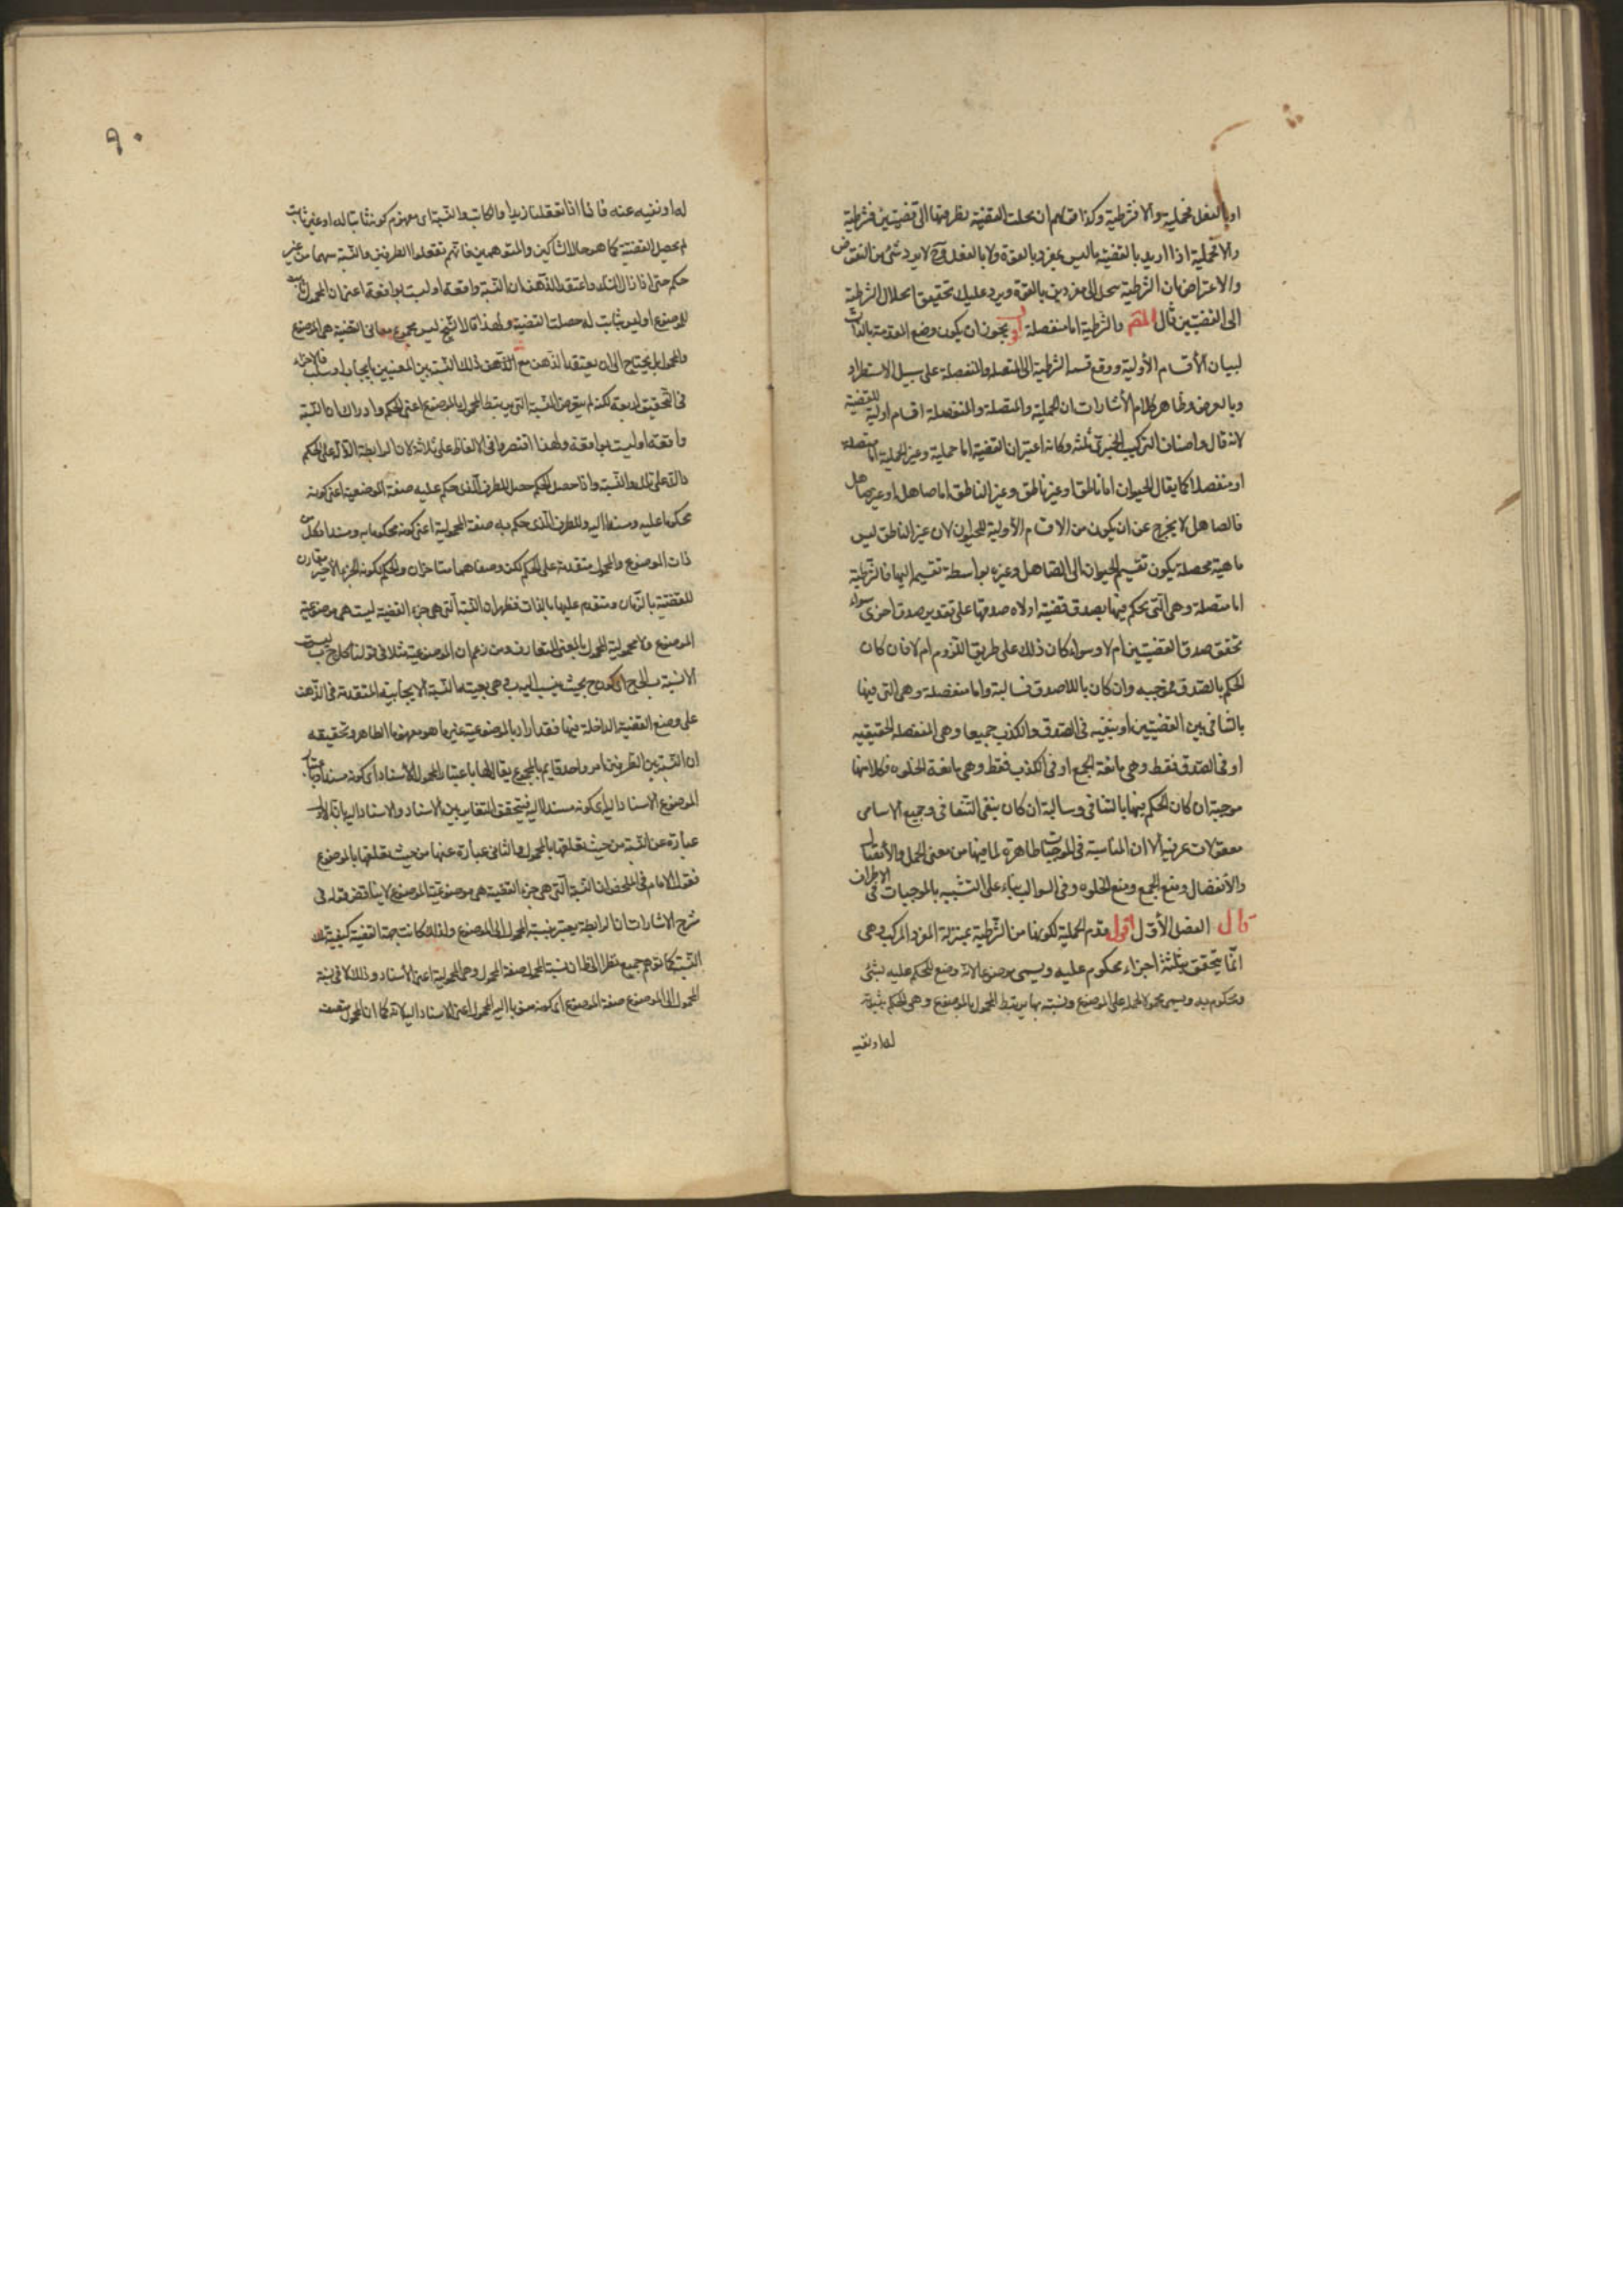 او بالفعل فحملية والا فشرطية وكذا قولهم ان انحلت القضية بطرفيها الى قضيتين فشرطية
والا فحملية اذا اريد بالقضية ما ليس بمفرد بالقوة ولا بالفعل وح لا يرد شئ من النقوض
والاعتراض بان الشرطية تنحل الى مفردين بالقوة ويرد عليك تحقيق انحلال الشرطية
الى القضيتين قال المصـ والشرطية اما منفصلة او يجوز ان يكون وضع المقدمة بالذات
لبيان الأقسام الأولية ووقع قسمة الشرطية الى المتصلة والمنفصلة على سبيل الاستطراد
وبالعرض وظاهر كلام الأشارات ان الحملية والمتصلة والمنفصلة اقسام اولية للقضية
لانه قال واصناف التركيب الخبرى ثلثة وكانه اعتبر ان القضية اما حملية وغير الحملية اما متصلة
او منفصلة كما يقال الحيوان اما ناطق او غير ناطق وغير الناطق اما صاهل او غير صاهل
فالصاهل لا يخرج عن ان يكون من الاقسام الأولية للحيوان لان غير الناطق ليس
ماهية محصلة يكون تقسيم الحيوان الى الصاهل وغيره بواسطة تقسيم اليها فالشرطية
اما متصلة وهى التى حكم فيها بصدق قضية او لا صدقها على تقدير صدق اخرى سواء
تحقق صدق القضيتين ام لا وسواء كان ذلك على طريق اللزوم ام لا فان كان
الحكم بالصدق فموجبه وان كان باللاصدق فسالبة واما منفصلة وهى التى فيها
بالتنافى بين القضيتين او بنفيه فى الصدق والكذب جميعا وهى المنفصلة الحقيقيه
او فى الصدق فقط وهى مانعة الجمع او فى الكذب فقط وهى مانعة الخلو وكلا منها
موجبة ان كان الحكم فيها بالتنافى وسالبة ان كان بنفى التنافى وجميع الاسامى
منقولات عرفية الا ان المناسبة فى الموجبات ظاهرة لما فيها من معنى الحمل والأتصال
والأنفصال ومنع الجمع ومنع الخلو وفى السوالب بناء على التشبيه بالموجبات فى الاطراف
قال الفصل الأول اقول قدم الحملية لكونها من الشرطية بمنزلة المفرد من المركب وهى
انما يتحقق بثلثة اجزاء محكوم عليه ويسمى موضوعا لانه وضع ليحكم عليه بشئ
ومحكوم به ويسمى محمولا لحمله على الموضوع ونسبة بها يرتبط المحمول بالموضوع وهى الحكم بثبوته
له او نفيه
٩٠
له او نفيه عنه فاذا تعقلنا زيدا والكاتب والنسبة اى مفهوم كونه ثابتا له او غير ثابت
لم يحصل القضية كما هو حال الشاكين والمتوهمين فانهم تعقلوا الطرفين والنسبة بينهما من غير
حكم حتى اذا زال الشك واعتقد الذهن ان النسبة واقعة او ليست بواقعة اعنى ان المحمول ثابت
للموضوع او ليس بثابت له حصلت القضية ولهذا قال الشيخ ليس مجموع معانى القضية هى الموضوع
والمحمول بل يحتاج الى ان يعتقد الذهن مع ذلك النسبة بين المعنيين بايجاب او سلب فالاجزاء
فى التحقيق اربعة لكنه لم يتعرض للنسبة التى يرتبط المحمول بالموضوع اعنى الحكم وادراك ان النسبة
واقعة او ليست بواقعة ولهذا اقتصروا فى الالفاظ على ثلاثة لان الرابطة الدالة على الحكم
دالة على تلك النسبة واذا حصل الحكم حصل للطرف الذى حكم عليه صفة الموضوعية اعنى كونه
محكوما عليه ومسندا اليه وللطرف الذى حكم به صفة المحمولية اعنى كونه محكوما به ومسندا فكل من
ذات الموضوع والمحمول متقدمة على الحكم لكن وصفاهما متاخران والحكم لكونه الجزء الأخير مقارن
للقضية بالزمان ومتقدم عليها بالذات فظهر ان النسبة التى هى جزء القضية ليست هى موضوعية
الموضوع ولا محمولية المحمول بالمعنى المتعارف ومن زعم ان الموضوعية مثلا فى قولنا كل ج ب ليست
الا نسبة ب الى ج اى كون ج بحيث ينسب اليه ب وهى بعينها النسبة الايجابية المتقدمة فى الذهن
على وضع القضية الداخلة فيها فقد اراد بالموضوعية غير ما هو مفهومها الظاهر وتحقيقه
ان النسبة بين الطرفين امر واحد قايم بالمجموع يقال لها باعتبار المحمول الأسناد اى كونه مسندا وباعتبار
الموضوع الاسناد اليه اى كونه مسندا اليه فيتحقق التغاير بين الاسناد والاسناد اليه بان الاول
عبارة عن النسبة من حيث تعلقها بالمحمول والثانى عبارة عنها من حيث تعلقها بالموضوع
فقول الامام فى الملخص ان النسبة التى هى جزء القضية هى موضوعية الموضوع لا يناقض قوله فى
شرح الاشارات ان الرابطة يعتبر بنسبة المحمول الى الموضوع ولذلك كانت جهة القضية كيفية تلك
النسبة كما توهم جميع نظرا الى ظاهر ان نسبة المحمول صفة المحمول وهى المحمولية اعنى الأسناد وذلك لا فى نسبة
المحمول الى الموضوع صفة الموضوع اى كونه منسوبا اليه المحمول اعنى الاسناد اليه لانه كما ان المحمول متصف